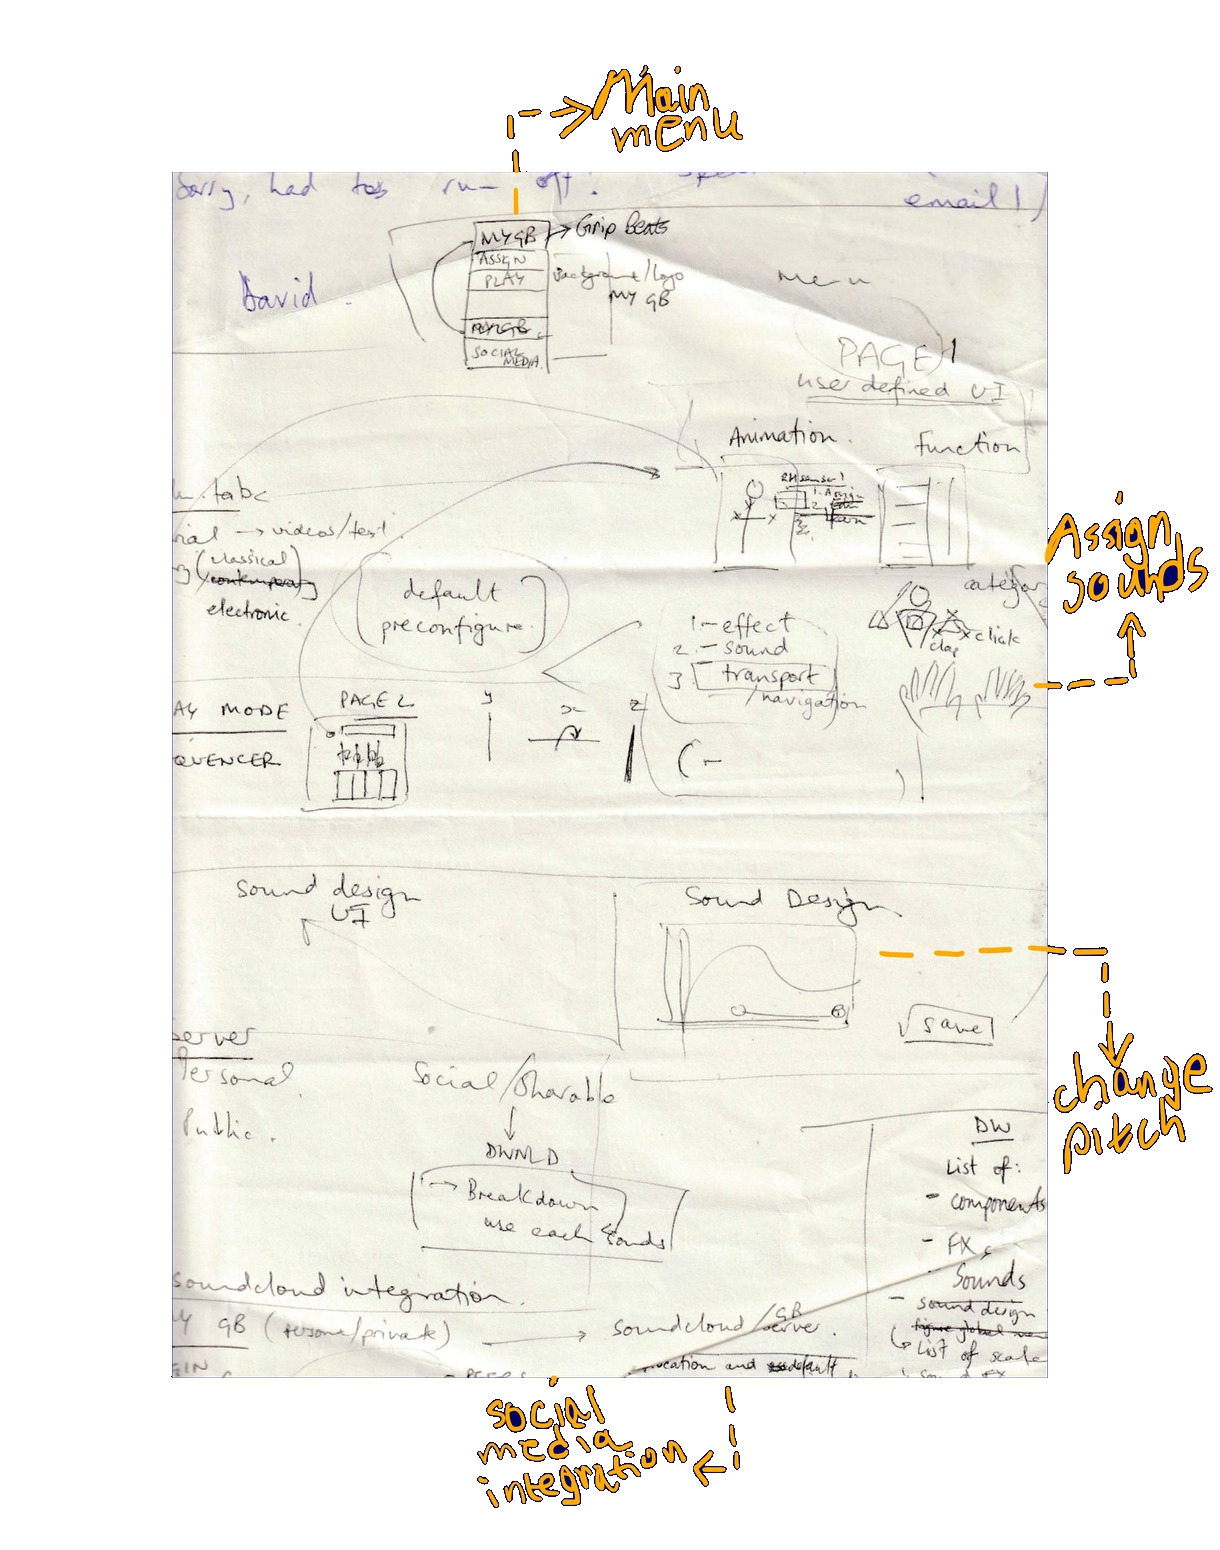 Main
menu
Sorry, had to run off!
email!)
MYGB → Grip Beats
ASSIGN
PLAY
Background/logo
MY GB
SOCIAL
MEDIA
David.
Menu
PAGE 1
user defined UI
Animation.
Function
→ videos/text
(classical)
electronic.
default
preconfigure.
Assign
sounds
1 - effect
2. - sound
3 transport
/navigation
click
clap
AY MODE
QUENCER
PAGE 2
y
x
z
(-
)
Sound design
UI
Sound Design
save
change
pitch
server
Personal
Public.
Social/Sharable
DWNLD
→ Breakdown
use each sounds
DW
List of:
- components
- FXs
- Sounds
- sound design
List of scale
soundcloud integration.
Y GB (persona/private) → soundcloud/GB
server.
ocation and default
social
media
integration